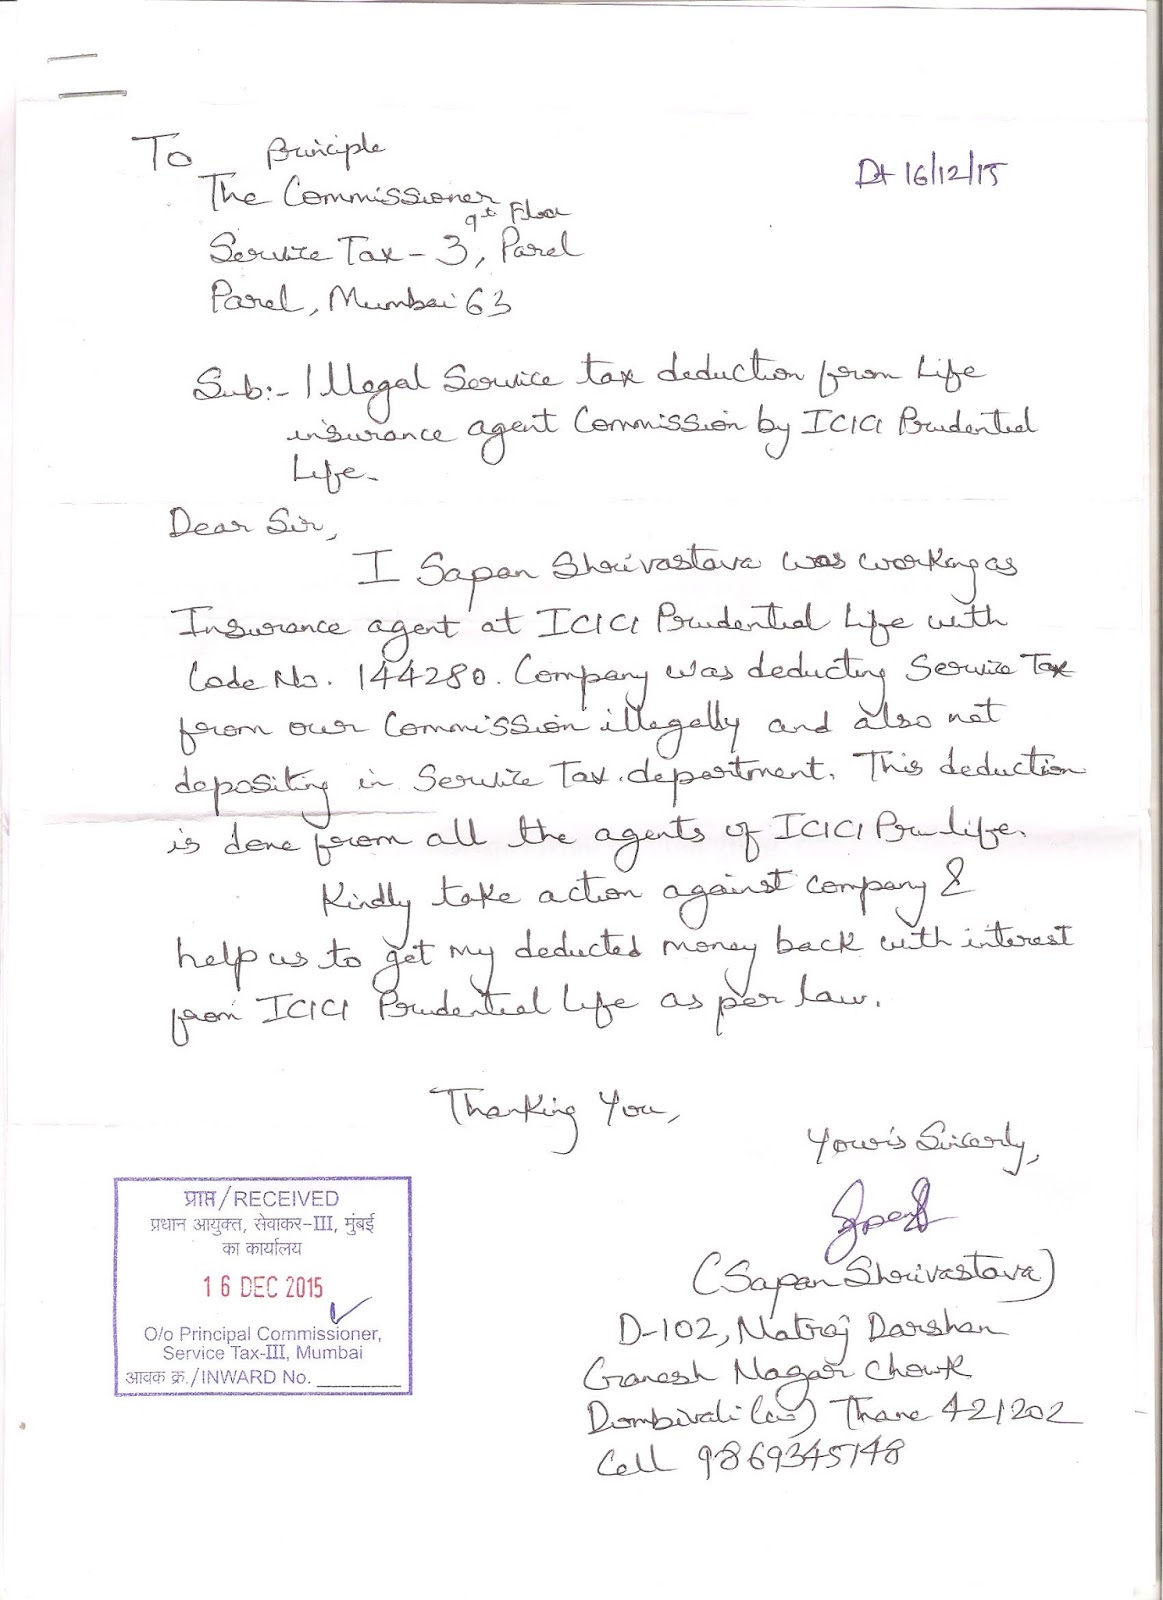 To Principle
Dt 16/12/15
The Commissioner
9th Floor
Service Tax - 3, Parel
Parel, Mumbai 63
Sub:- Illegal Service tax deduction from Life
insurance agent Commission by ICICI Prudential
Life.
Dear Sir,
I Sapan Shrivastava was working as
Insurance agent at ICICI Prudential Life with
Code No. 144280. Company was deducting Service Tax
from our Commission illegally and also not
depositing in Service Tax department. This deduction
is done from all the agents of ICICI Pru life.
Kindly take action against company &
help us to get my deducted money back with interest
from ICICI Prudential Life as per law.
Thanking You,
Your's Sincerly,
(Sapan Shrivastava)
D-102, Natraj Darshan
Ganesh Nagar Chowk
Dombivali (w) Thane 421202
Cell 9869345148
प्राप्त/RECEIVED
प्रधान आयुक्त, सेवाकर-III, मुंबई
का कार्यालय
16 DEC 2015
O/o Principal Commissioner,
Service Tax-III, Mumbai
आवक क्र./INWARD No.